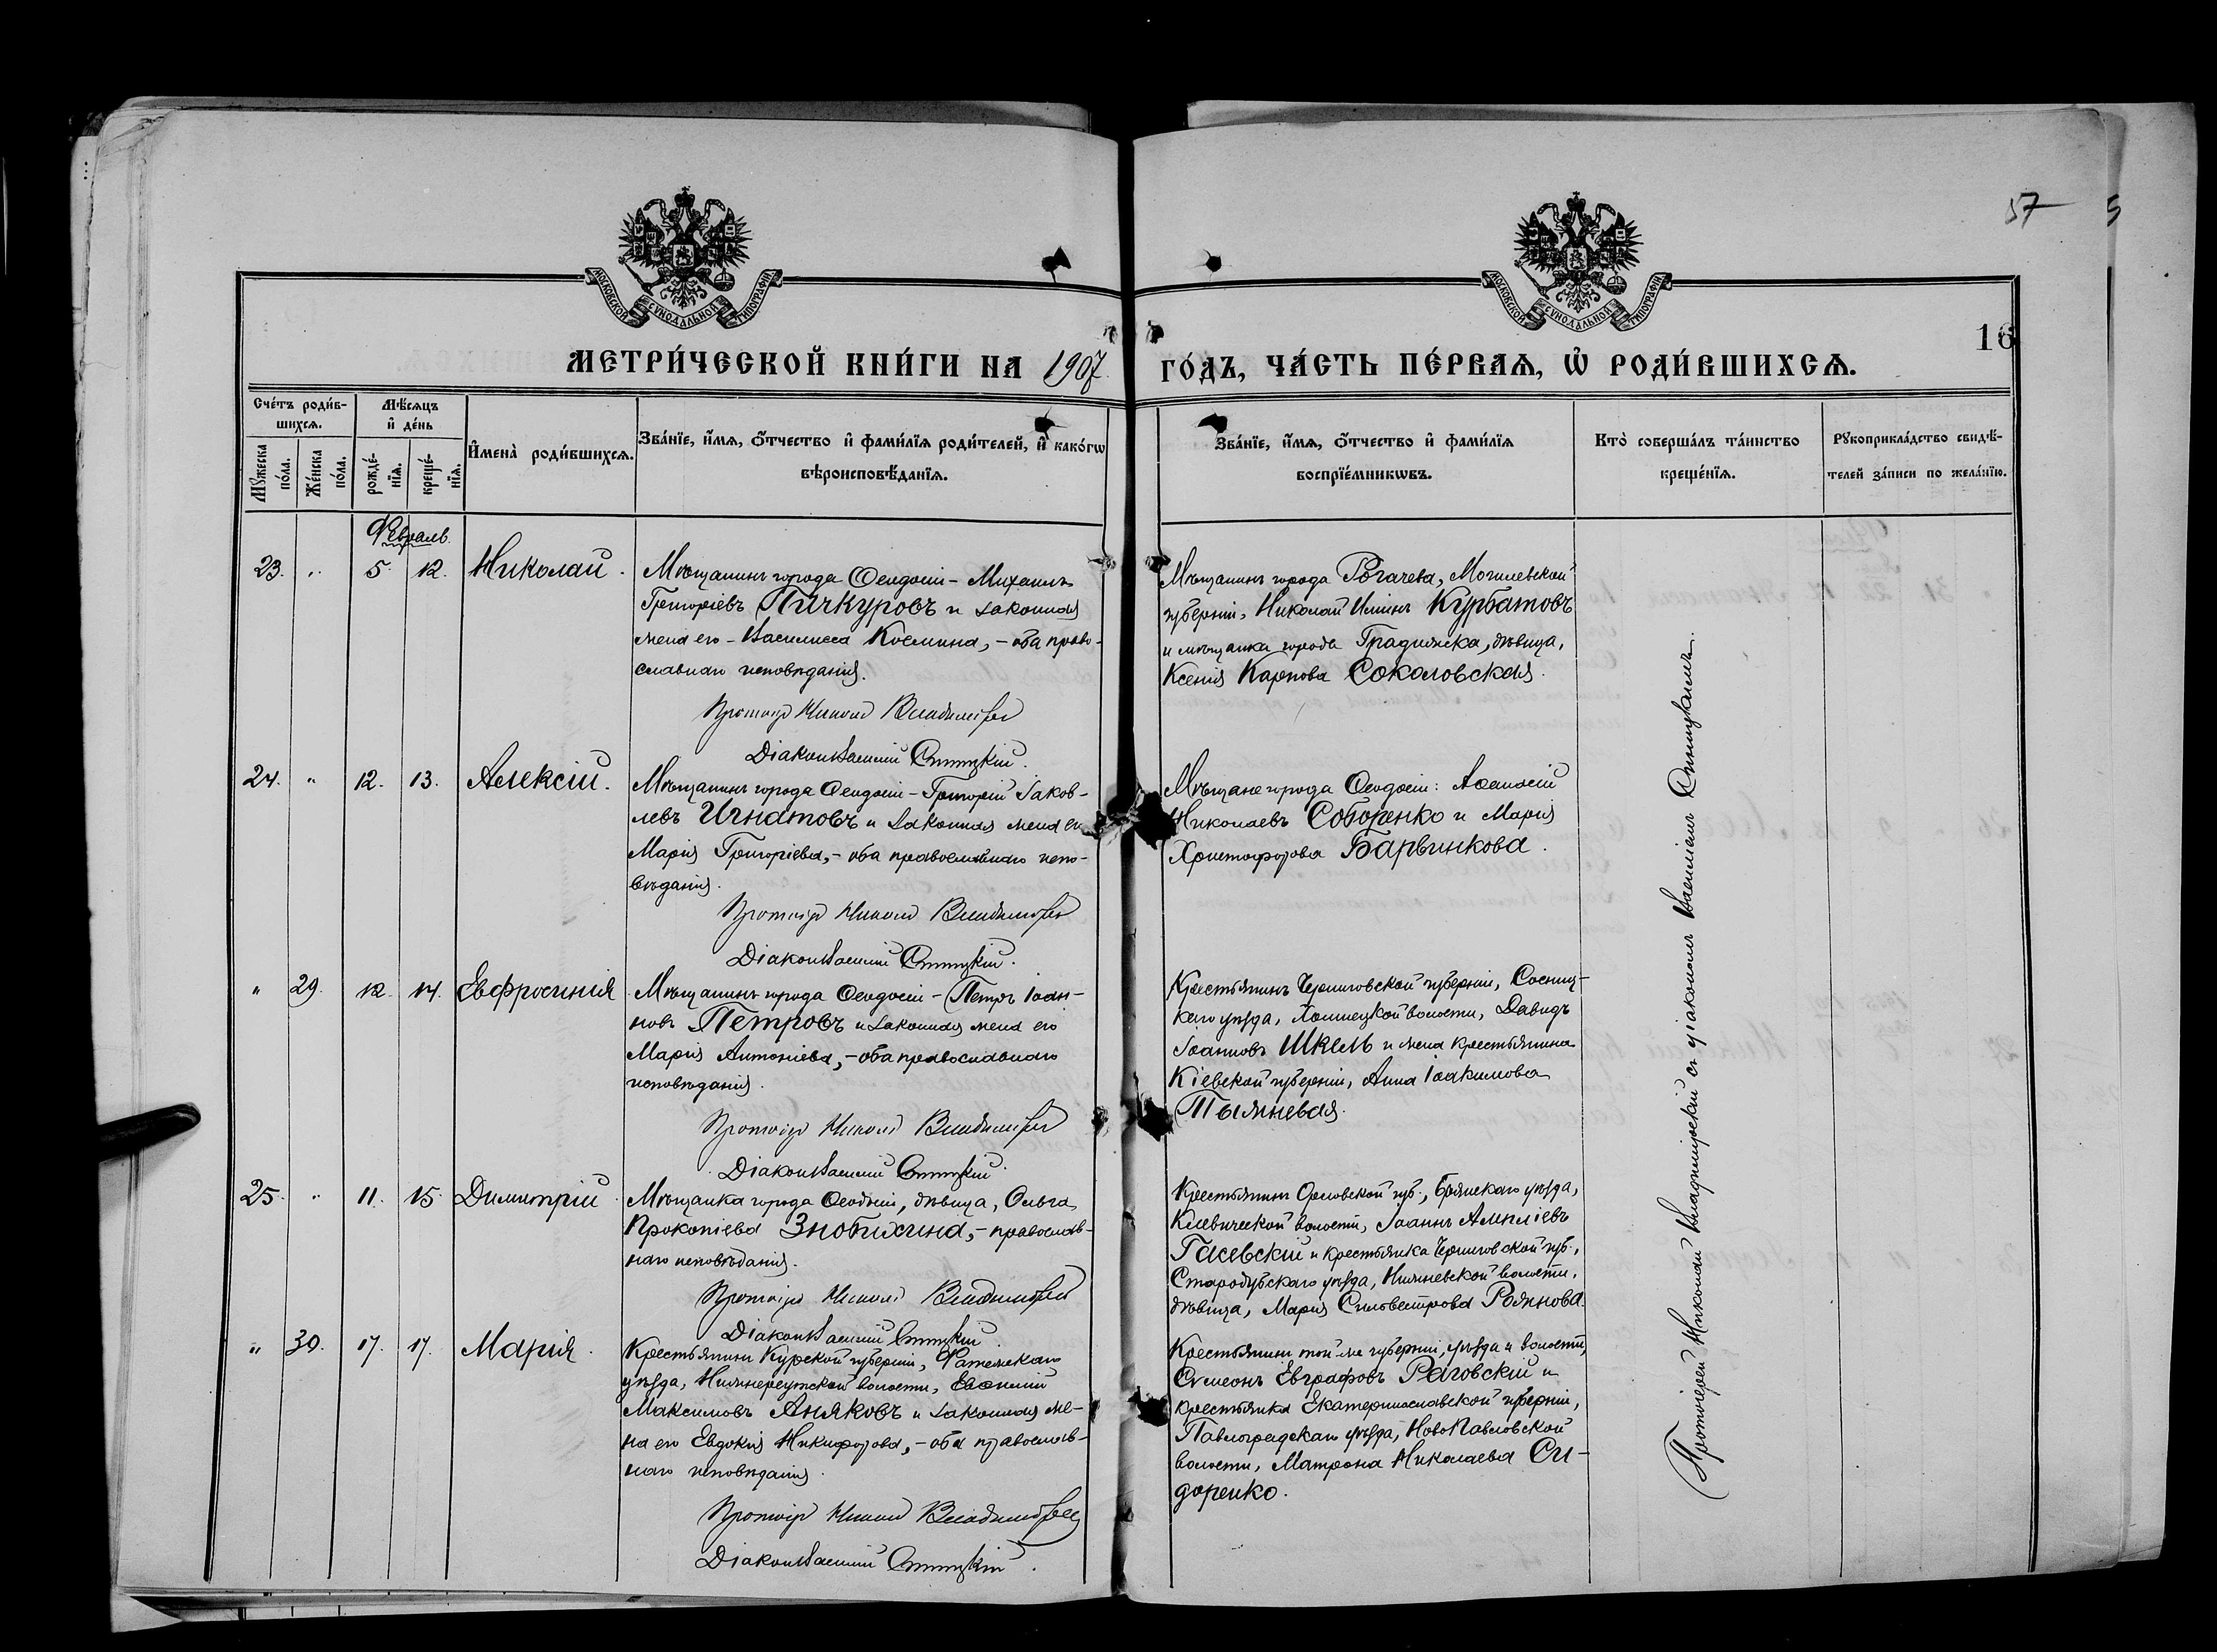 57
16
МОСКОВСКОЙ СѴНОДАЛЬНОЙ ТИПОГРАФІИ
МОСКОВСКОЙ СѴНОДАЛЬНОЙ ТИПОГРАФІИ
МЕТРИ́ЧЕСКОЙ КНИ́ГИ НА 1907 ГО́ДЪ, ЧА́СТЬ ПЕ́РВАѦ, Ѡ҆ РОДИ́ВШИХСѦ.
Сче́тъ роди́в-
шихсѧ.
Мꙋ́жеска по́ла.
Же́нска по́ла.
Мѣ́сѧцъ
и҆ де́нь
рожде́-
нїѧ.
креще́-
нїѧ.
И҆мена̀ роди́вшихсѧ.
Зва́нїе, и҆́мѧ, ѻ҆́тчество и҆ фами́лїѧ роди́телей, и҆ како́гѡ
вѣроисповѣ́данїѧ.
Зва́нїе, и҆́мѧ, ѻ҆́тчество и҆ фами́лїѧ
воспрїе́мникѡвъ.
Кто̀ соверша́лъ та́инство
креще́нїѧ.
Рꙋкоприкла́дство свидѣ́-
телей за́писи по жела́нїю.
Февраль.
23. " 5. 12. Николай.
Мѣщанинъ города Ѳеодосіи – Михаилъ
Григоріевъ Пичкуровъ и законная
жена его – Василисса Косьмина, – оба право-
славнаго исповѣданія.
Протоіер Николай Владимірскій
Діаконъ Василий
Мѣщанинъ города Рогачева, Могилевской
губерніи, Николай Ильинъ Курбатовъ
и мѣщанка города Градижска, дѣвица,
Ксенія Карпова Соколовская.
24. " 12. 13. Алексій.
Мѣщанинъ города Ѳеодосіи – Григорій Іаков-
левъ Игнатовъ и законная жена его
Марія Григоріева, – оба православнаго испо-
вѣданія.
Протоіер Николай Владимірскій
Діаконъ Василий
Мѣщане города Ѳеодосіи: Аѳанасій
Николаевъ Соборенко и Марія
Христофорова Барвинкова.
" 29. 12. 14. Евфросинія
Мѣщанинъ города Ѳеодосіи – Петръ Іоан-
новъ Петровъ и законная жена его
Марія Антоніева, – оба православнаго
исповѣданія.
Протоіер Николай Владимірскій
Діаконъ Василий
Крестьянинъ Черниговской губерніи, Сосниц-
каго уѣзда, волости, Давидъ
Іоанновъ Шкель и жена крестьянина
Кіевской губерніи, Анна Іоакимова
25. " 11. 15. Димитрій
Мѣщанка города Ѳеодосіи, дѣвица, Ольга
Прокопіева Знобихина, – православ-
наго исповѣданія.
Протоіер Николай Владимірскій
Діаконъ Василий
Крестьянинъ Орловской губ., Брянскаго уѣзда,
волости, Іоаннъ
и крестьянка Черниговской губ.,
Стародубскаго уѣзда, волости,
дѣвица, Марія Сильвестрова
" 30. 17. 17. Марія.
Крестьянинъ Курской губерніи, Фатежскаго
уѣзда, Нижнереутской волости, Евѳимій
Максимовъ Аняковъ и законная же-
на его Евдокія Никифорова, – оба православ-
наго исповѣданія.
Протоіер Николай Владимірскій
Діаконъ Василий
Крестьянинъ той-же губерніи, уѣзда и волости,
Сѵмеонъ Евграфовъ Раговскій и
крестьянка Екатеринославской губерніи,
Павлоградскаго уѣзда, НовоПавловской
волости, Матрона Николаева Си-
доренко.
Протоіерей Николай Владимірскій съ діакономъ Василіемъ